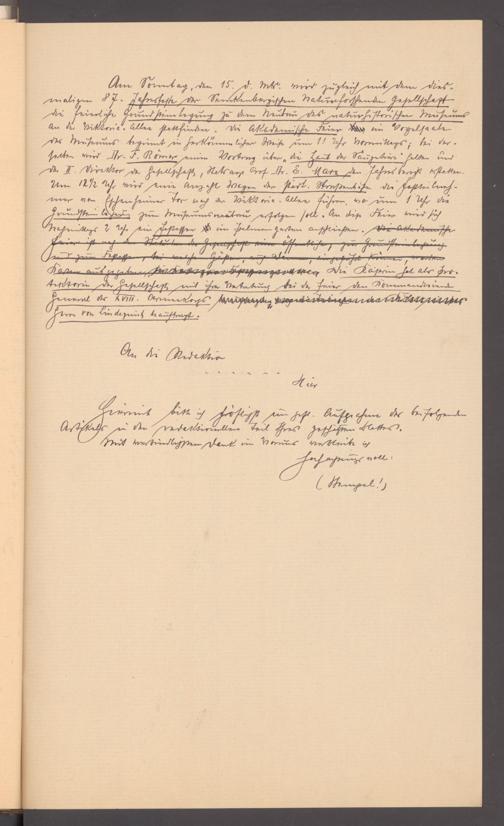 Am Sonntag, den 15. d. Mts. wird zugleich mit dem dies-
maligen 87. Jahresfeste der Senckenbergischen Naturforschenden Gesellschaft
die feierliche Grundsteinlegung zu dem Neubau des naturhistorischen Museums
an der Viktoria-Allee stattfinden. Die Akademische Feier im Vogelsaale
des Museums beginnt in herkömmlicher Weise um 11 Uhr Vormittags; bei der-
selben wird Dr. F. Römer einen Vortrag über "die Haut der Säugetiere" halten und
der II. Direktor der Gesellschaft, Stabsarzt Prof. Dr. E. Marx den Jahresbericht erstatten.
Um 12½ Uhr wird eine Anzahl Wagen der städt. Straßenbahn die Festteilneh-
mer vom Eschenheimer Tor nach der Viktoria-Allee führen, wo um 1 Uhr die
Grundsteinlegung zum Museumsneubau erfolgen soll. An diese Feier wird sich
Nachmittags 2 Uhr ein Festessen im Palmengarten anschließen. Die Akademische
Feier ist nach
und zum Festessen, bei welchem Gäste, auch Damen, eingeführt können, werden
Karten ausgegeben Die Kaiserin hat als Pro-
tektorin der Gesellschaft mit ihrer Vertretung bei der Feier den Kommandierenden
General des XVIII. Armeekorps
Herrn von Lindequist beauftragt.
An die Redaktion
Hier
Hiermit bitte ich höflichst um gefl. Aufnahme des beifolgenden
Artikels in den redaktionellen Teil Ihres geschätzten Blattes.
Mit verbindlichstem Dank im Voraus verbleibe ich
hochachtungsvoll:
(Stempel!)